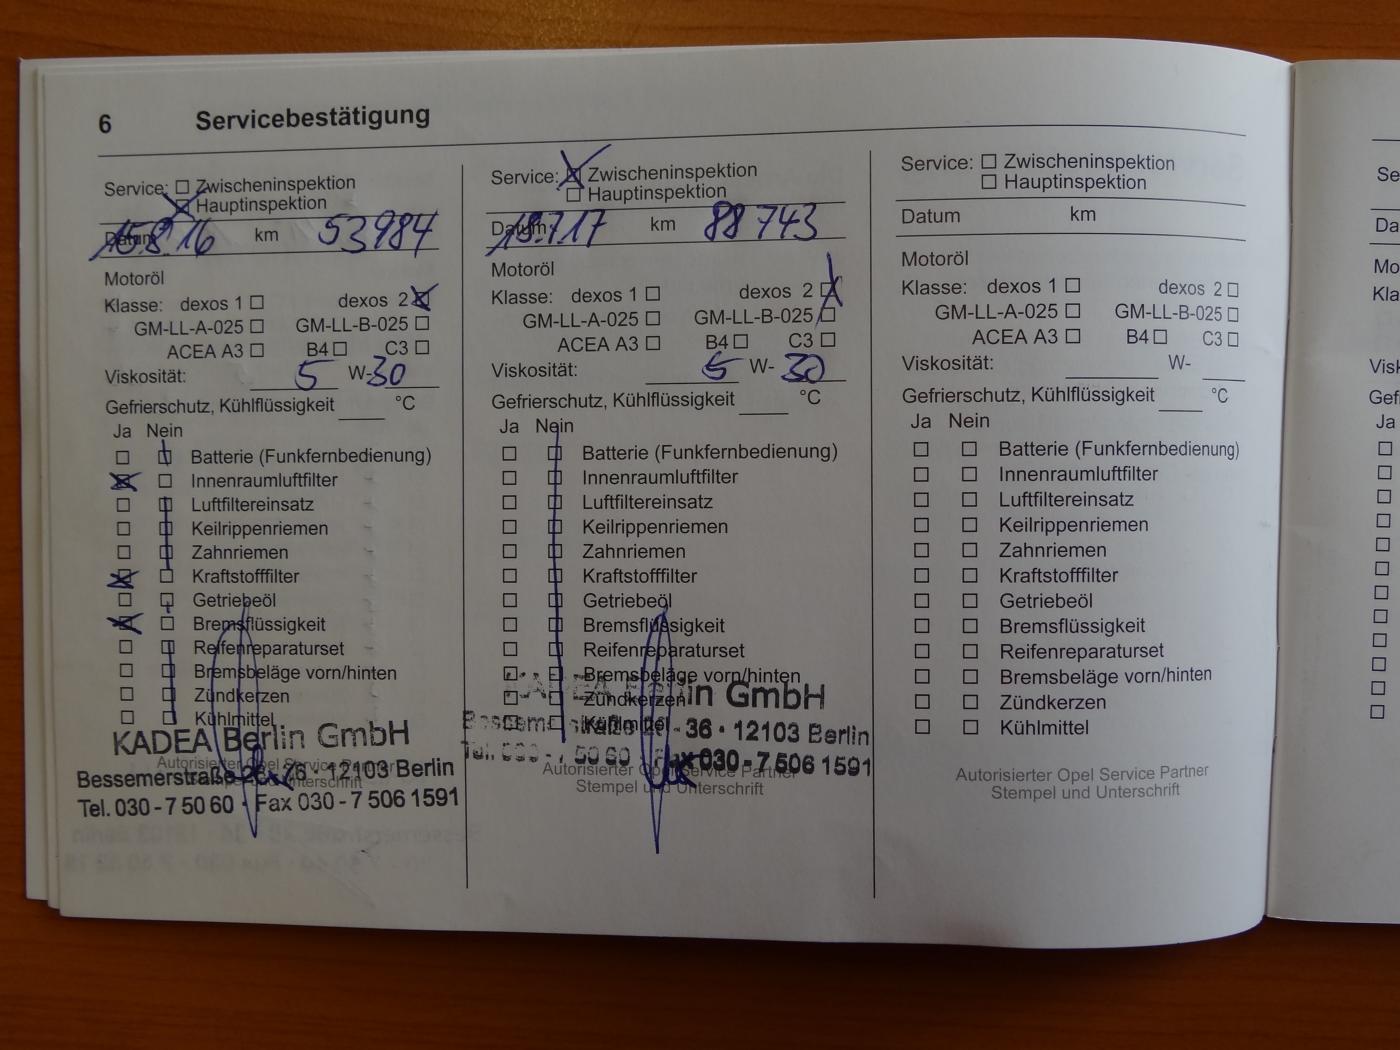 6 Servicebestätigung
Service: Zwischeninspektion
Hauptinspektion
Datum 15.8.16 km 53984
Motoröl
Klasse: dexos 1 dexos 2
GM-LL-A-025 GM-LL-B-025
ACEA A3 B4 C3
Viskosität: 5 W-30
Gefrierschutz, Kühlflüssigkeit °C
Ja Nein
Batterie (Funkfernbedienung)
Innenraumluftfilter
Luftfiltereinsatz
Keilrippenriemen
Zahnriemen
Kraftstofffilter
Getriebeöl
Bremsflüssigkeit
Reifenreparaturset
Bremsbeläge vorn/hinten
Zündkerzen
Kühlmittel
KADEA Berlin GmbH
Autorisierter Opel Service Partner
Bessemerstraße 12103 Berlin
Stempel und Unterschrift
Tel. 030 - 7 50 60 · Fax 030 - 7 506 1591
Service: Zwischeninspektion
Hauptinspektion
Datum 18.7.17 km 88743
Motoröl
Klasse: dexos 1 dexos 2
GM-LL-A-025 GM-LL-B-025
ACEA A3 B4 C3
Viskosität: 5 W-30
Gefrierschutz, Kühlflüssigkeit °C
Ja Nein
Batterie (Funkfernbedienung)
Innenraumluftfilter
Luftfiltereinsatz
Keilrippenriemen
Zahnriemen
Kraftstofffilter
Getriebeöl
Bremsflüssigkeit
Reifenreparaturset
Bremsbeläge vorn/hinten
KADEA Berlin GmbH
Zündkerzen
Kühlmittel
Bessemerstraße - 36 · 12103 Berlin
Tel. 030 - 7 50 60 Fax 030 - 7 506 1591
Autorisierter Opel Service Partner
Stempel und Unterschrift
Service: Zwischeninspektion
Hauptinspektion
Datum km
Motoröl
Klasse: dexos 1 dexos 2
GM-LL-A-025 GM-LL-B-025
ACEA A3 B4 C3
Viskosität: W-
Gefrierschutz, Kühlflüssigkeit °C
Ja Nein
Batterie (Funkfernbedienung)
Innenraumluftfilter
Luftfiltereinsatz
Keilrippenriemen
Zahnriemen
Kraftstofffilter
Getriebeöl
Bremsflüssigkeit
Reifenreparaturset
Bremsbeläge vorn/hinten
Zündkerzen
Kühlmittel
Autorisierter Opel Service Partner
Stempel und Unterschrift
Se
Da
Mo
Kla
Visk
Gef
Ja